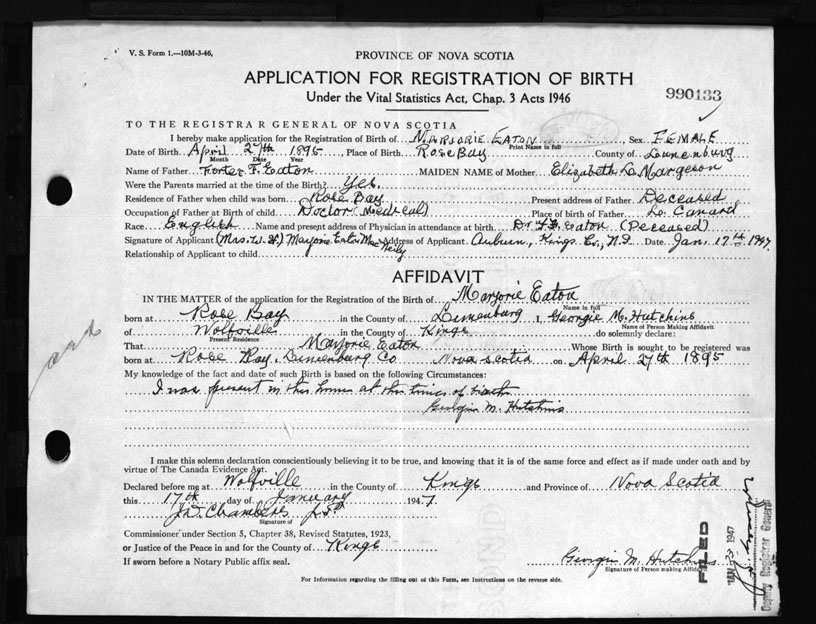 V. S. Form 1.—10M-3-46,
PROVINCE OF NOVA SCOTIA
APPLICATION FOR REGISTRATION OF BIRTH
Under the Vital Statistics Act, Chap. 3 Acts 1946
990133
TO THE REGISTRAR GENERAL OF NOVA SCOTIA
I hereby make application for the Registration of Birth of MARJORIE EATON, Sex FEMALE
Print Name in full
Date of Birth April 27th 1895, Place of Birth Rose Bay County of Lunenburg
Month Date Year
Name of Father F. Eaton MAIDEN NAME of Mother Elizabeth D. Margeson
Were the Parents married at the time of the Birth? Yes.
Residence of Father when child was born Rose Bay Present address of Father Deceased
Occupation of Father at Birth of child Doctor (Medical) Place of birth of Father Canard
Race English Name and present address of Physician in attendance at birth Dr. F. F. Eaton (Deceased)
Signature of Applicant (Mrs. W. H.) Marjorie Eaton MacNeily Address of Applicant Auburn, Kings Co., N.S. Date Jan. 17th 1947.
Relationship of Applicant to child
AFFIDAVIT
IN THE MATTER of the application for the Registration of the Birth of Marjorie Eaton
Name in full
born at Rose Bay in the County of Lunenburg I, Georgie M. Hutchins
Name of Person Making Affidavit
of Wolfville in the County of Kings do solemnly declare:
Present Residence
That Marjorie Eaton Whose Birth is sought to be registered was
born at Rose Bay, Lunenburg Co Nova Scotia on April 27th 1895
My knowledge of the fact and date of such Birth is based on the following Circumstances:
I was present in the home at the time of birth
Georgie M. Hutchins
I make this solemn declaration conscientiously believing it to be true, and knowing that it is of the same force and effect as if made under oath and by
virtue of The Canada Evidence Act.
Declared before me at Wolfville in the County of Kings and Province of Nova Scotia
this 17th day of January 1947.
Chambers J.P.
Signature of
Commissioner under Section 5, Chapter 38, Revised Statutes, 1923,
or Justice of the Peace in and for the County of Kings
If sworn before a Notary Public affix seal.
Georgie M. Hutchins
Signature of Person making Affidavit
For Information regarding the filling out of this Form, see Instructions on the reverse side.
FILED
JAN 23 1947
Deputy Registrar General